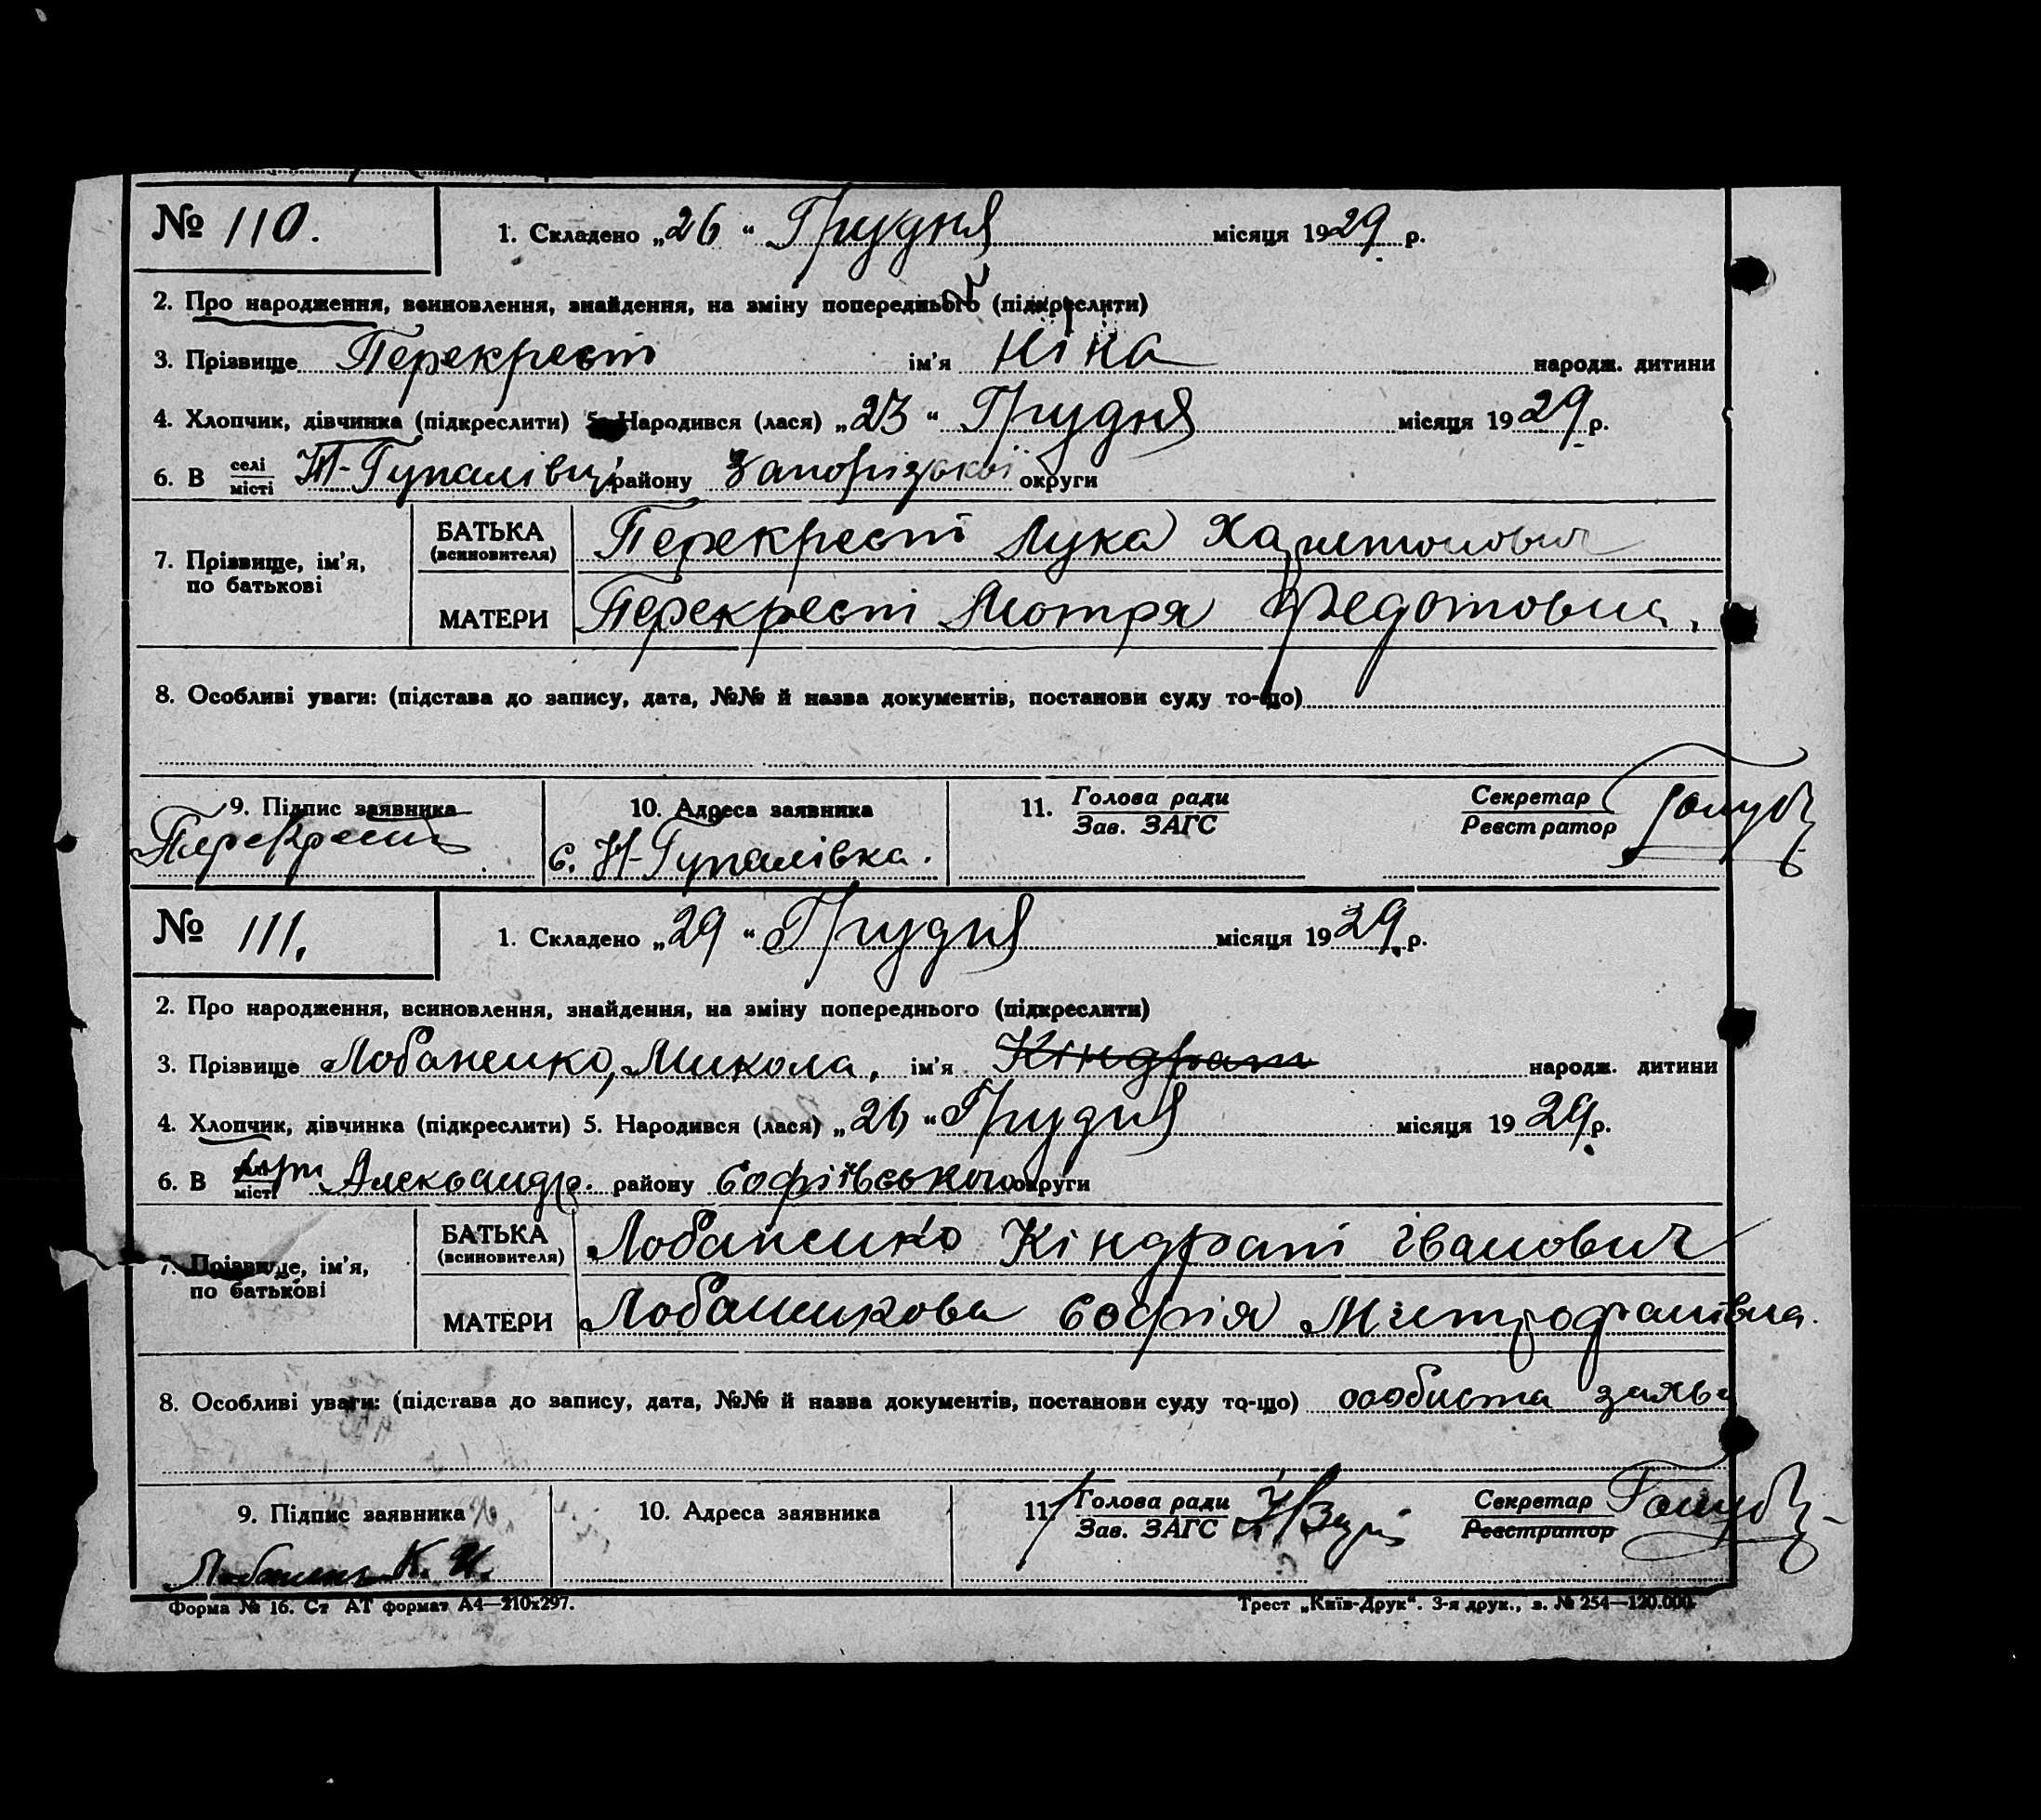 № 110. 1. Складено „26" Грудня місяця 1929 р.
2. Про народження, всиновлення, знайдення, на зміну попереднього (підкреслити)
3. Прізвище Перекрест ім'я Ніна народж. дитини
4. Хлопчик, дівчинка (підкреслити) 5. Народився (лася) „23" Грудня місяця 1929 р.
6. В селі місті Н-Гупалівці району Запорізької округи
7. Прізвище, ім'я, по батькові
БАТЬКА (всиновителя) Перекрест Лука Харитонович
МАТЕРИ Перекрест Мотря Федотовна.
8. Особливі уваги: (підстава до запису, дата, №№ й назва документів, постанови суду то-що)
9. Підпис заявника 10. Адреса заявника 11. Голова ради Секретар
Зав. ЗАГС Реєстратор
Перекрест с. Н-Гупалівка. Голуб
№ 111. 1. Складено „29" Грудня місяця 1929 р.
2. Про народження, всиновлення, знайдення, на зміну попереднього (підкреслити)
3. Прізвище Лобаненко, Микола, ім'я Кіндрат народж. дитини
4. Хлопчик, дівчинка (підкреслити) 5. Народився (лася) „26" Грудня місяця 1929 р.
6. В місті Александр. району Софіївського округи
7. Прізвище, ім'я, по батькові
БАТЬКА (всиновителя) Лобаненко Кіндрат Іванович
МАТЕРИ Лобаненкова Софія Митрофанівна.
8. Особливі уваги: (підстава до запису, дата, №№ й назва документів, постанови суду то-що) особиста заява
9. Підпис заявника 10. Адреса заявника 11. Голова ради Секретар Голуб
Зав. ЗАГС Реєстратор
К. И.
Форма № 16. Ст АТ формат А4—210х297. Трест „Київ-Друк". 3-я друк., з. № 254—120.000.